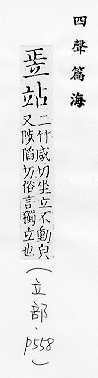 四聲篇海
站
二竹咸切坐立不動皃
又陟陷切俗言獨立也
(立部·p558)